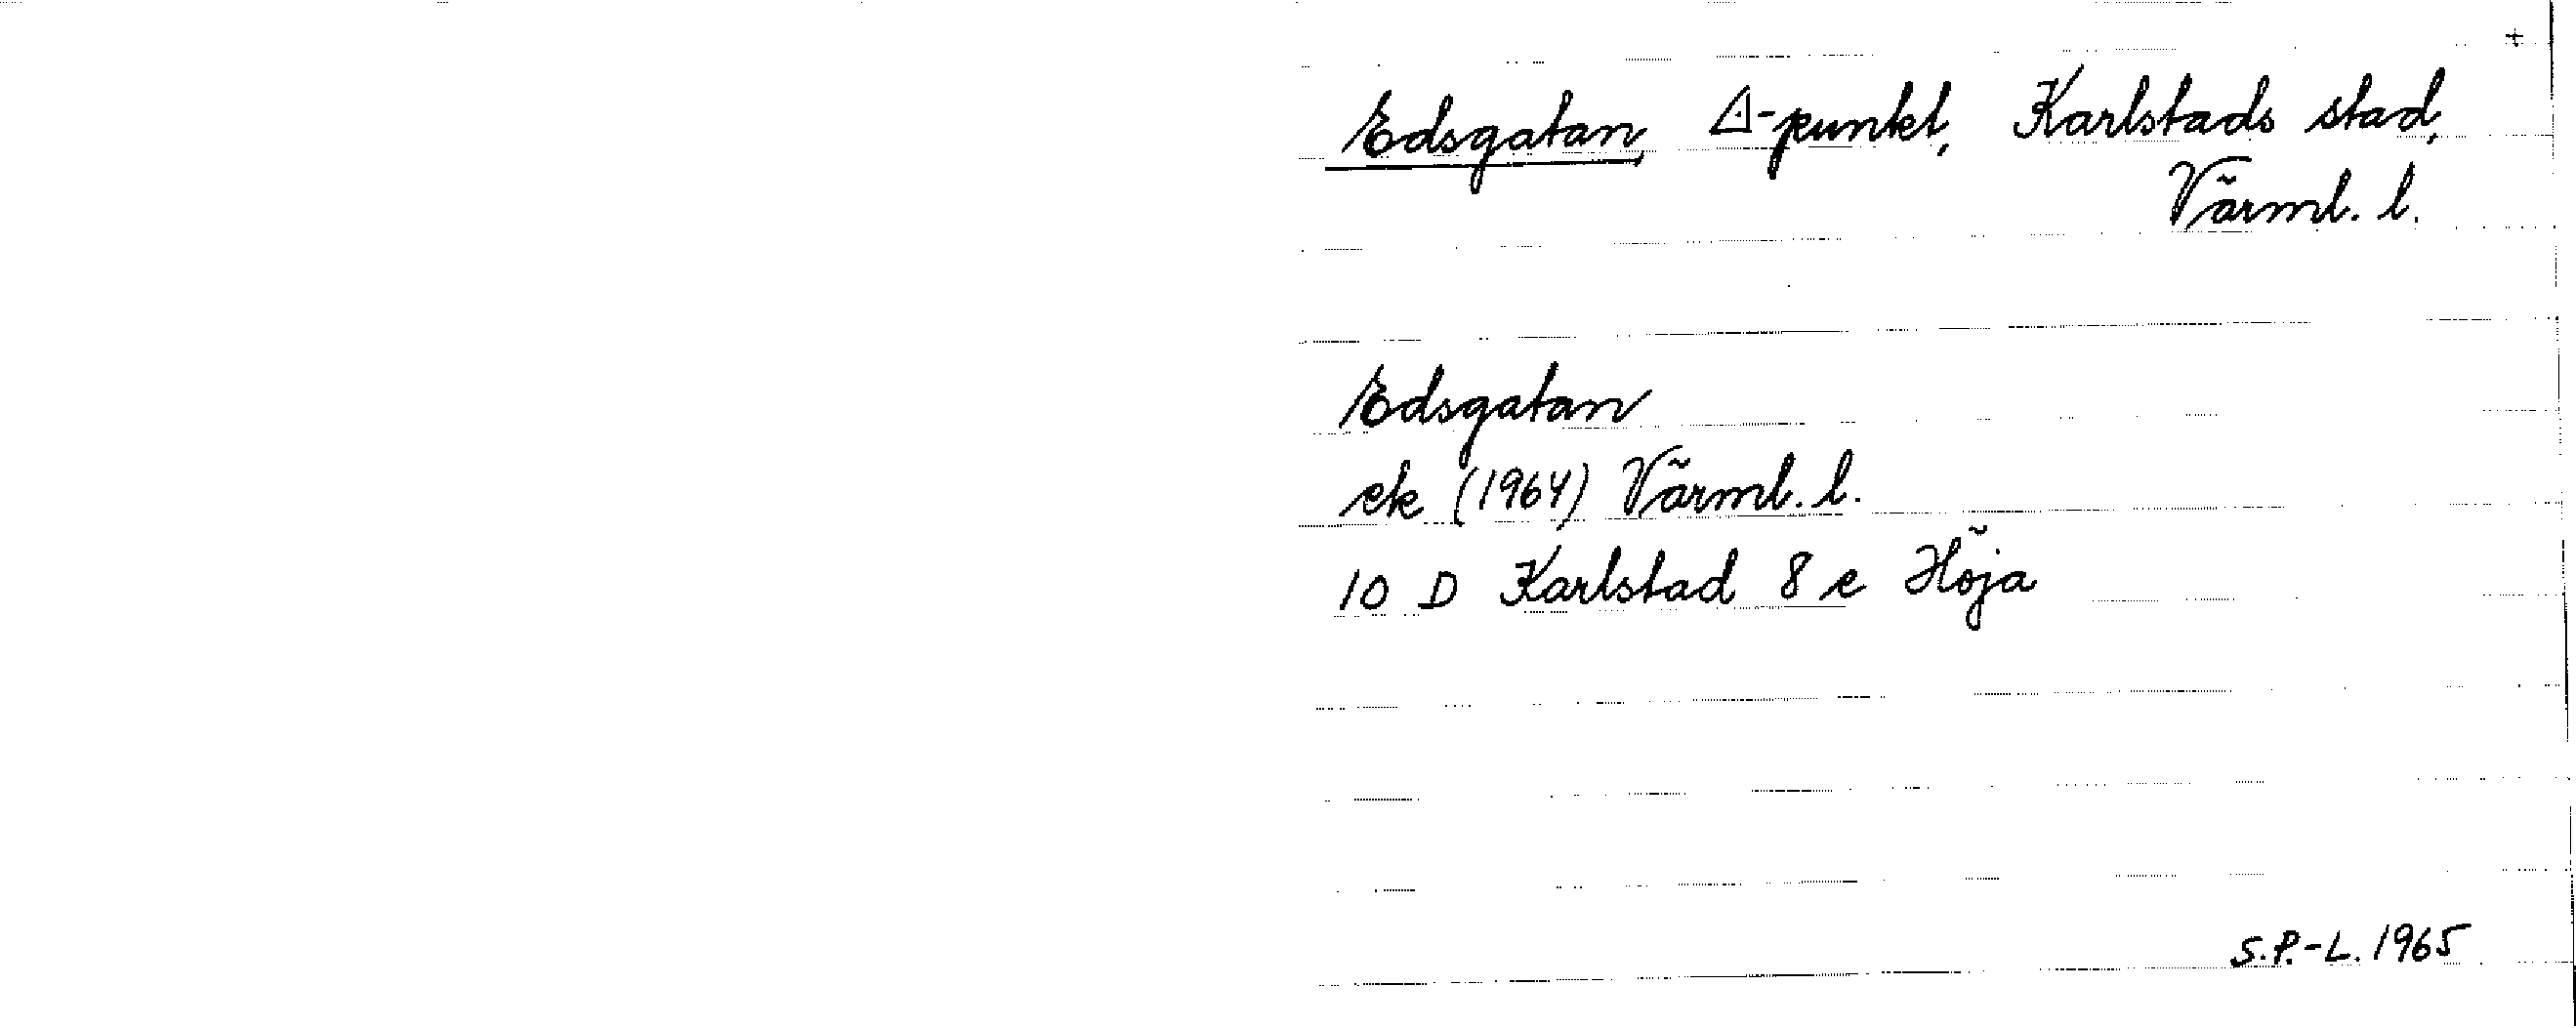 +
Edsgatan, △-punkt, Karlstads stad,
Värml. l.
Edsgatan
ek (1964) Värml. l.
10 D Karlstad 8 e Höja
S.P.-L. 1965